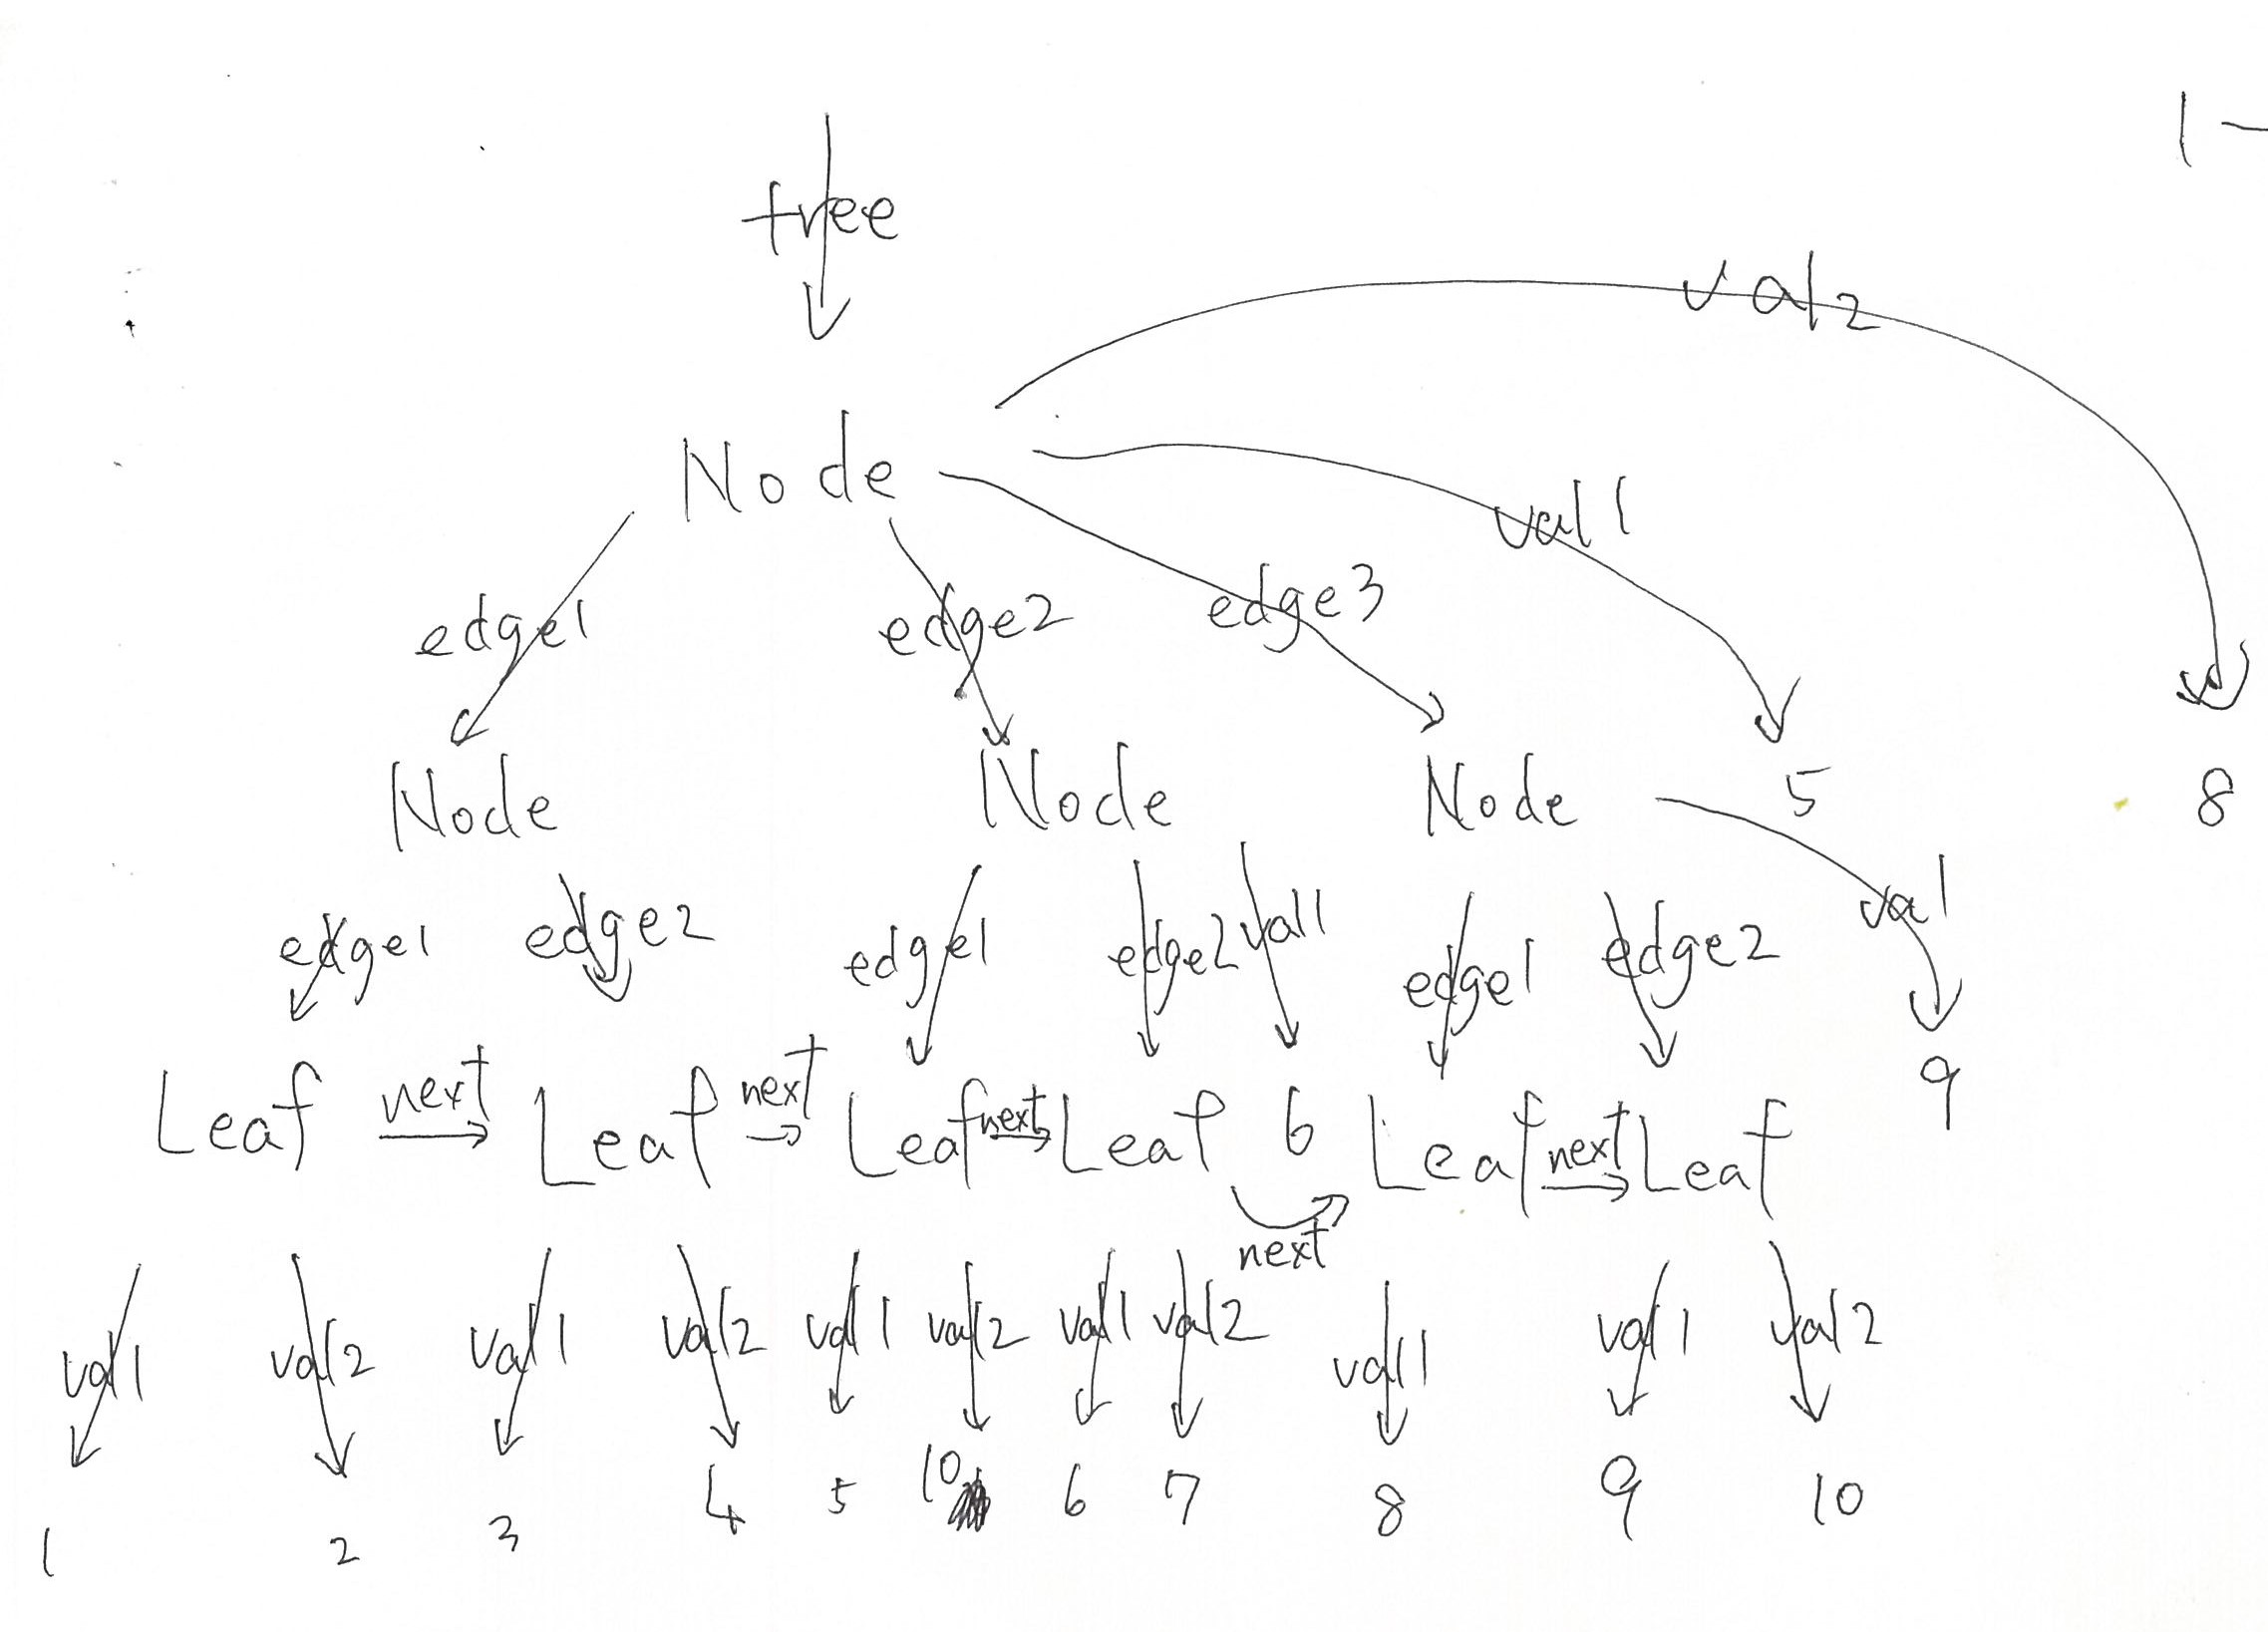 1 -
tree
val2
Node
val1
edge1 edge2 edge3
Node Node Node 5 8
edge1 edge2 edge1 edge2 val1 edge1 edge2 val
Leaf next Leaf next Leaf next Leaf 6 Leaf next Leaf 9
next
val1 val2 val1 val2 val1 val2 val1 val2 val1 val1 val2
1 2 3 4 5 10 6 7 8 9 10